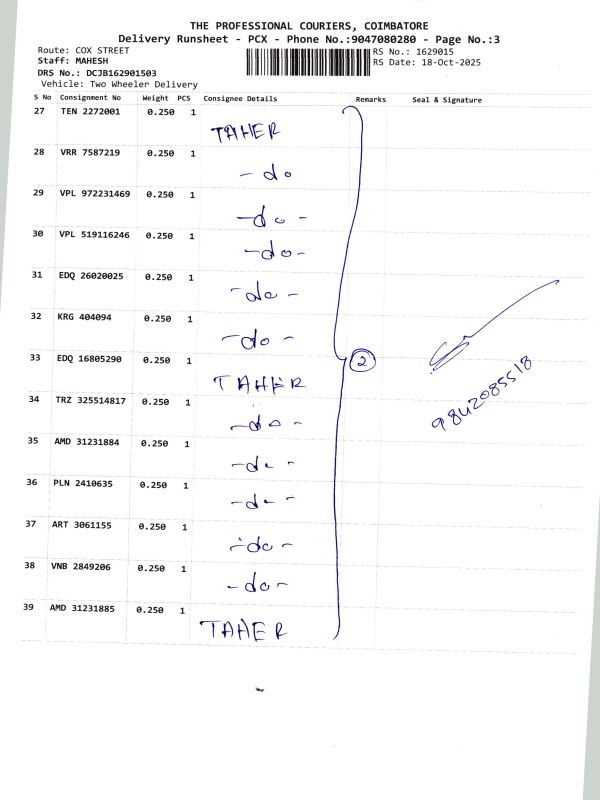 THE PROFESSIONAL COURIERS, COIMBATORE
Delivery Runsheet - PCX - Phone No.:9047080280 - Page No.:3
Route: COX STREET
Staff: MAHESH
DRS No.: DCJB162901503
Vehicle: Two Wheeler Delivery
RS No.: 1629015
RS Date: 18-Oct-2025
S No Consignment No Weight PCS Consignee Details Remarks Seal & Signature
27 TEN 2272001 0.250 1
TAHER
28 VRR 7587219 0.250 1
- do
29 VPL 972231469 0.250 1
- do -
30 VPL 519116246 0.250 1
- do -
31 EDQ 26020025 0.250 1
- do -
32 KRG 404094 0.250 1
- do -
33 EDQ 16805290 0.250 1
2
TAHER
34 TRZ 325514817 0.250 1
- do -
9842085518
35 AMD 31231884 0.250 1
- do -
36 PLN 2410635 0.250 1
- do -
37 ART 3061155 0.250 1
- do -
38 VNB 2849206 0.250 1
- do -
39 AMD 31231885 0.250 1
TAHER